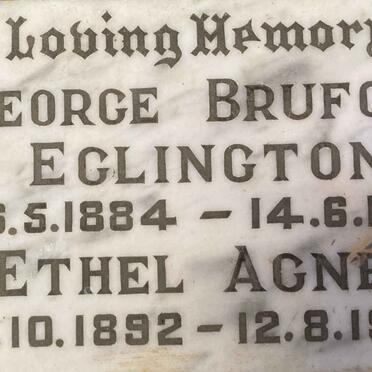 Loving Memory
EORGE BRUFO
EGLINGTON
6.5.1884 – 14.6.1
ETHEL AGNE
.10.1892 – 12.8.19